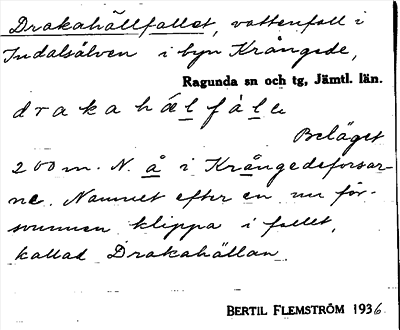 Drakahällfallet, vattenfall i
Indalsälven i byn Krångede,
Ragunda sn och tg, Jämtl. län.
drakahælfále
Beläget
200 m. N. å i Krångedeforsar-
ne. Namnet efter en nu för-
svunnen klippa i fallet,
kallad Drakahällan.
BERTIL FLEMSTRÖM 1936